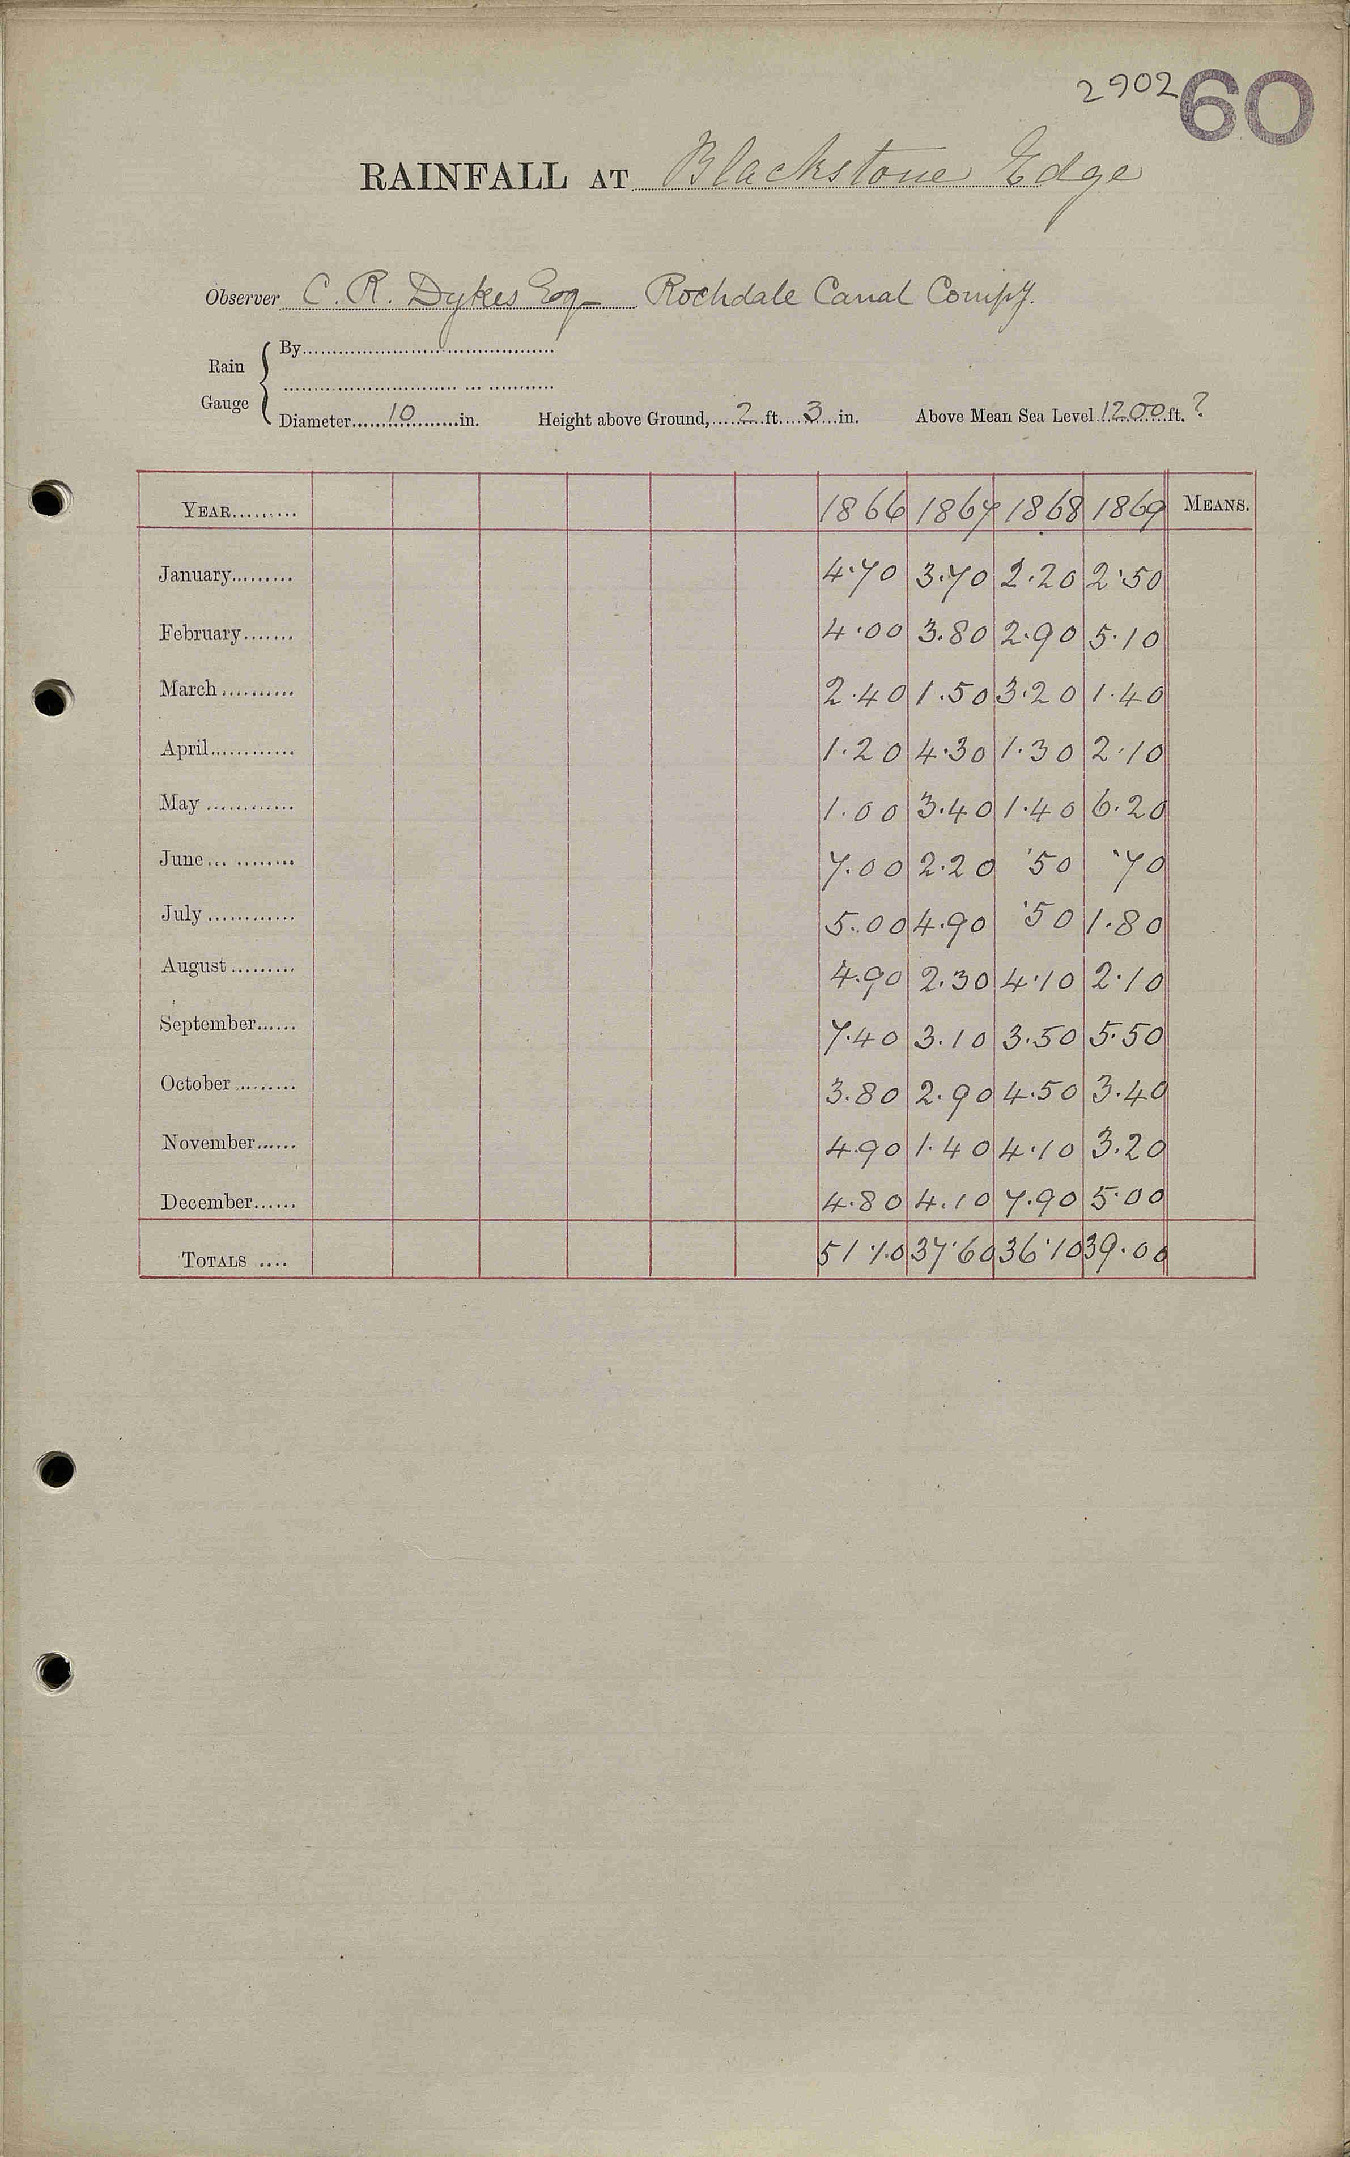 2902 60
RAINFALL AT Blackstone Edge
Observer C. R. Dykes Esq Rochdale Canal Compy.
Rain Gauge { By
Diameter 10 in. Height above Ground, 2 ft. 3 in. Above Mean Sea Level 1200 ft. ?
YEAR 1866 1867 1868 1869 MEANS.
January 4.70 3.70 2.20 2.50
February 4.00 3.80 2.90 5.10
March 2.40 1.50 3.20 1.40
April 1.20 4.30 1.30 2.10
May 1.00 3.40 1.40 6.20
June 7.00 2.20 .50 .70
July 5.00 4.90 .50 1.80
August 4.90 2.30 4.10 2.10
September 7.40 3.10 3.50 5.50
October 3.80 2.90 4.50 3.40
November 4.90 1.40 4.10 3.20
December 4.80 4.10 7.90 5.00
TOTALS 51.10 37.60 36.10 39.00